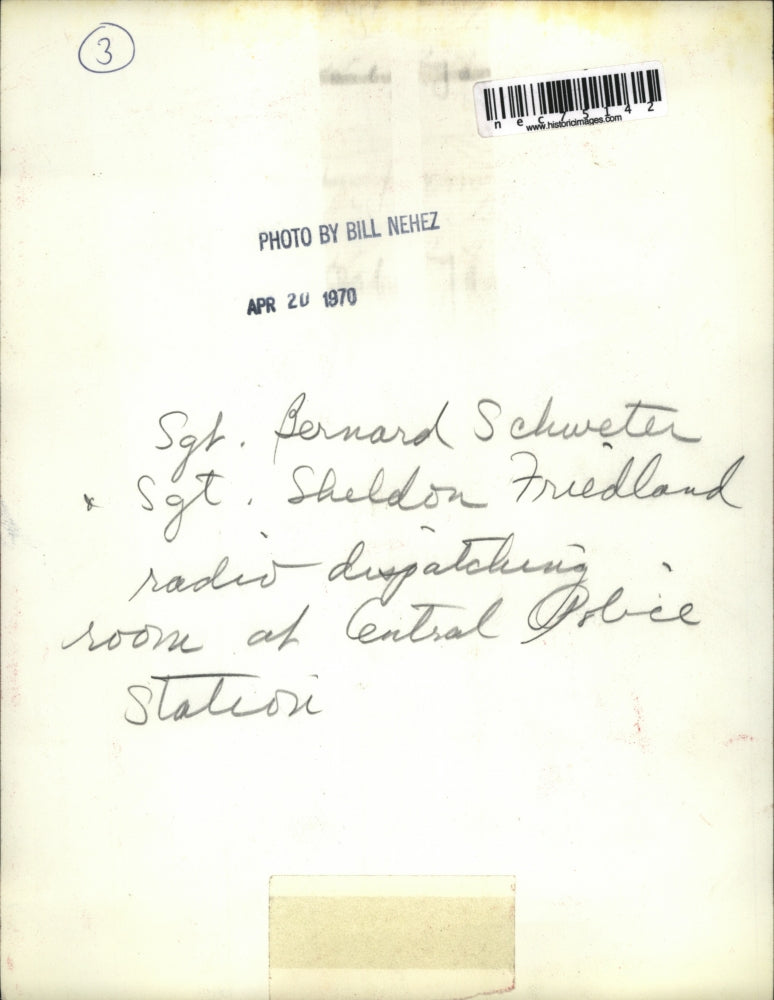 3
nec75142
www.historicimages.com
PHOTO BY BILL NEHEZ
APR 20 1970
Sgt. Bernard Schweter
x Sgt. Sheldon Friedland
radio dispatching
room at Central Police
Station